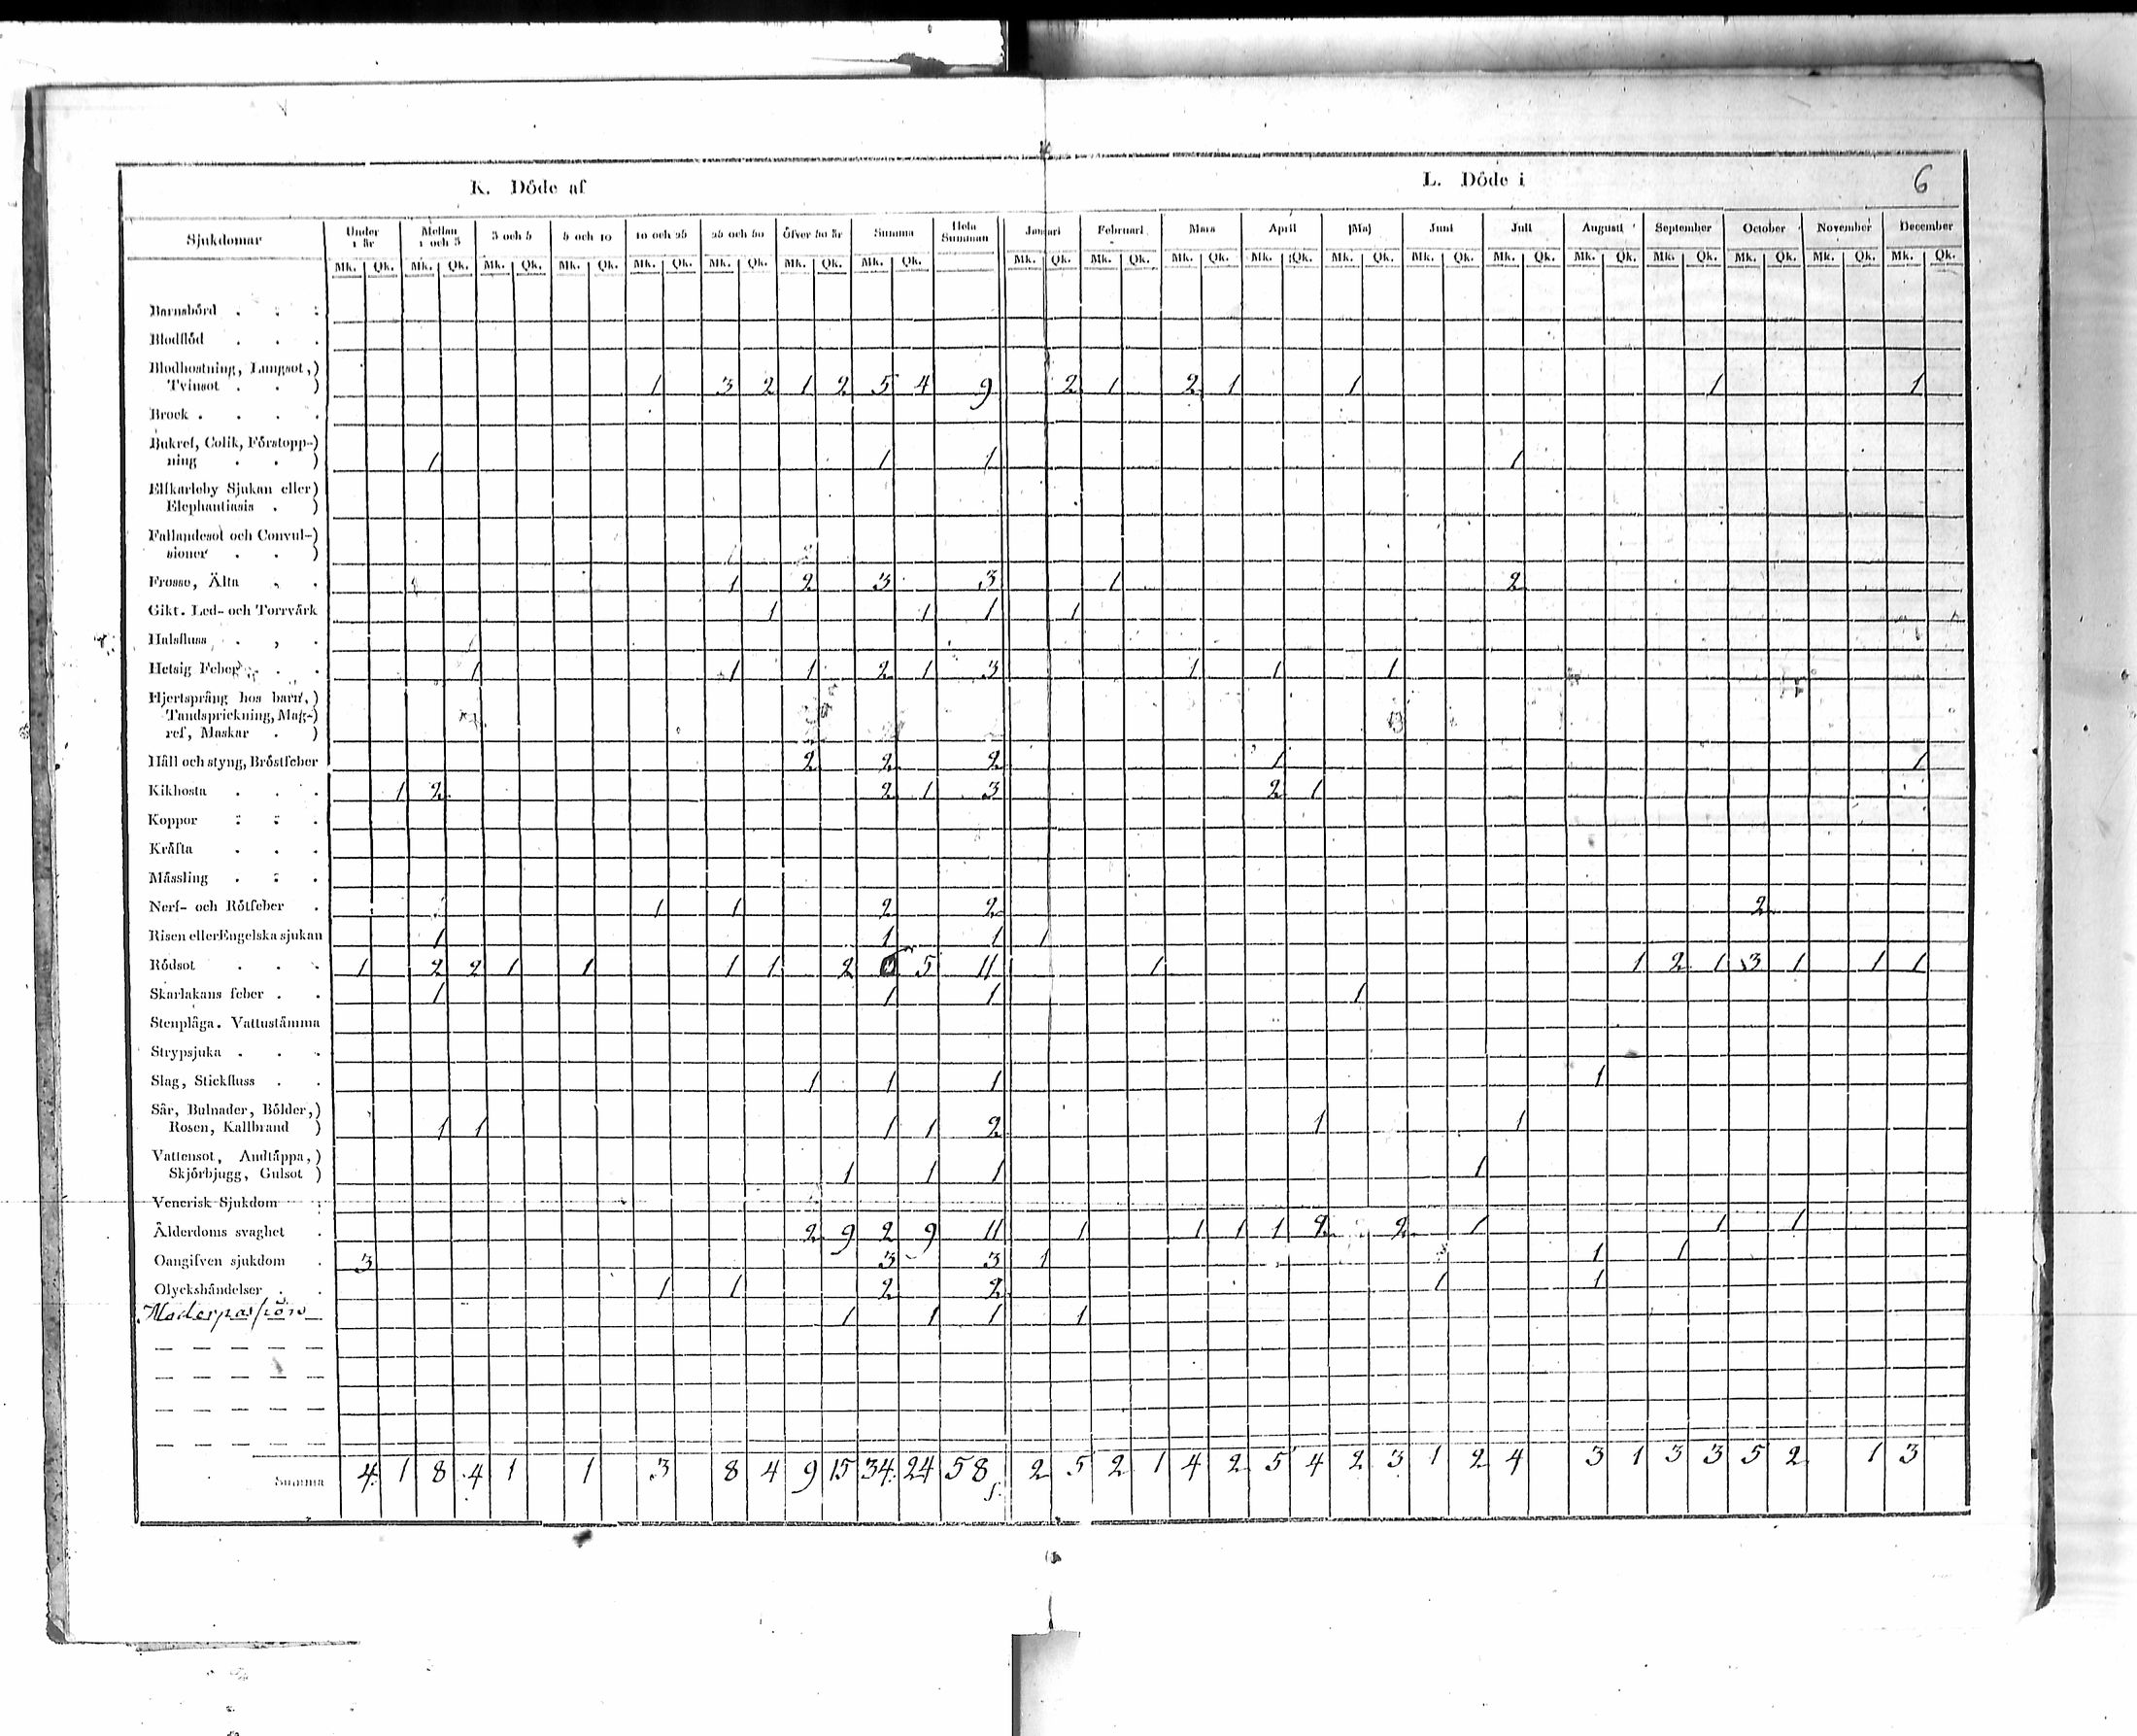 K. Döde af
L. Döde i
6
Sjukdomar Under 1 år Mellan 1 och 3 3 och 5 5 och 10 10 och 25 25 och 50 Öfver 50 år Summa Hela Summan Januari Februari Mars April Maj Juni Juli Augusti September October November December
Mk. Qk. Mk. Qk. Mk. Qk. Mk. Qk. Mk. Qk. Mk. Qk. Mk. Qk. Mk. Qk. Mk. Qk. Mk. Qk. Mk. Qk. Mk. Qk. Mk. Qk. Mk. Qk. Mk. Qk. Mk. Qk. Mk. Qk. Mk. Qk. Mk. Qk. Mk. Qk.
Barnsbörd
Blodflöd
Blodhostning, Lungsot,)
Tvinsot . . ) 1 3 2 1 2 5 4 9 2 1 2 1 1 1 1
Brock
Bukref, Colik, Förstopp-)
ning . . ) 1 1 1 1
Elfkarleby Sjukan eller)
Elephantiasis . )
Fallandesot och Convul-)
sioner . . )
Frosse, Älta 1 2 3 3 1 2
Gikt. Led- och Torrvärk 1 1 1 1
Halsfluss
Hetsig Feber 1 1 1 2 1 3 1 1 1
Hjertsprång hos barn,)
Tandsprickning, Mag-)
ref, Maskar . )
Håll och styng, Bröstfeber 2 2 2 1 1
Kikhosta 1 2 2 1 3 2 1
Koppor
Kräfta
Mässling
Nerf- och Rötfeber 1 1 2 2 2
Risen eller Engelska sjukan 1 1 1 1
Rödsot 1 2 2 1 1 1 1 2 6 5 11 1 1 2 1 3 1 1 1
Skarlakans feber 1 1 1 1
Stenplåga. Vattustämma
Strypsjuka
Slag, Stickfluss 1 1 1 1
Sår, Bulnader, Bölder,)
Rosen, Kallbrand ) 1 1 1 1 2 1 1
Vattensot, Andtäppa,)
Skjörbjugg, Gulsot ) 1 1 1 1
Venerisk Sjukdom
Ålderdoms svaghet 2 9 2 9 11 1 1 1 1 2 2 1 1 1
Oangifven sjukdom 3 3 3 1 1 1
Olyckshändelser 1 1 2 2 1 1
Moderpassion 1 1 1 1
Summa 4 1 8 4 1 1 3 8 4 9 15 34 24 58 2 5 2 1 4 2 5 4 2 3 1 2 4 3 1 3 3 5 2 1 3